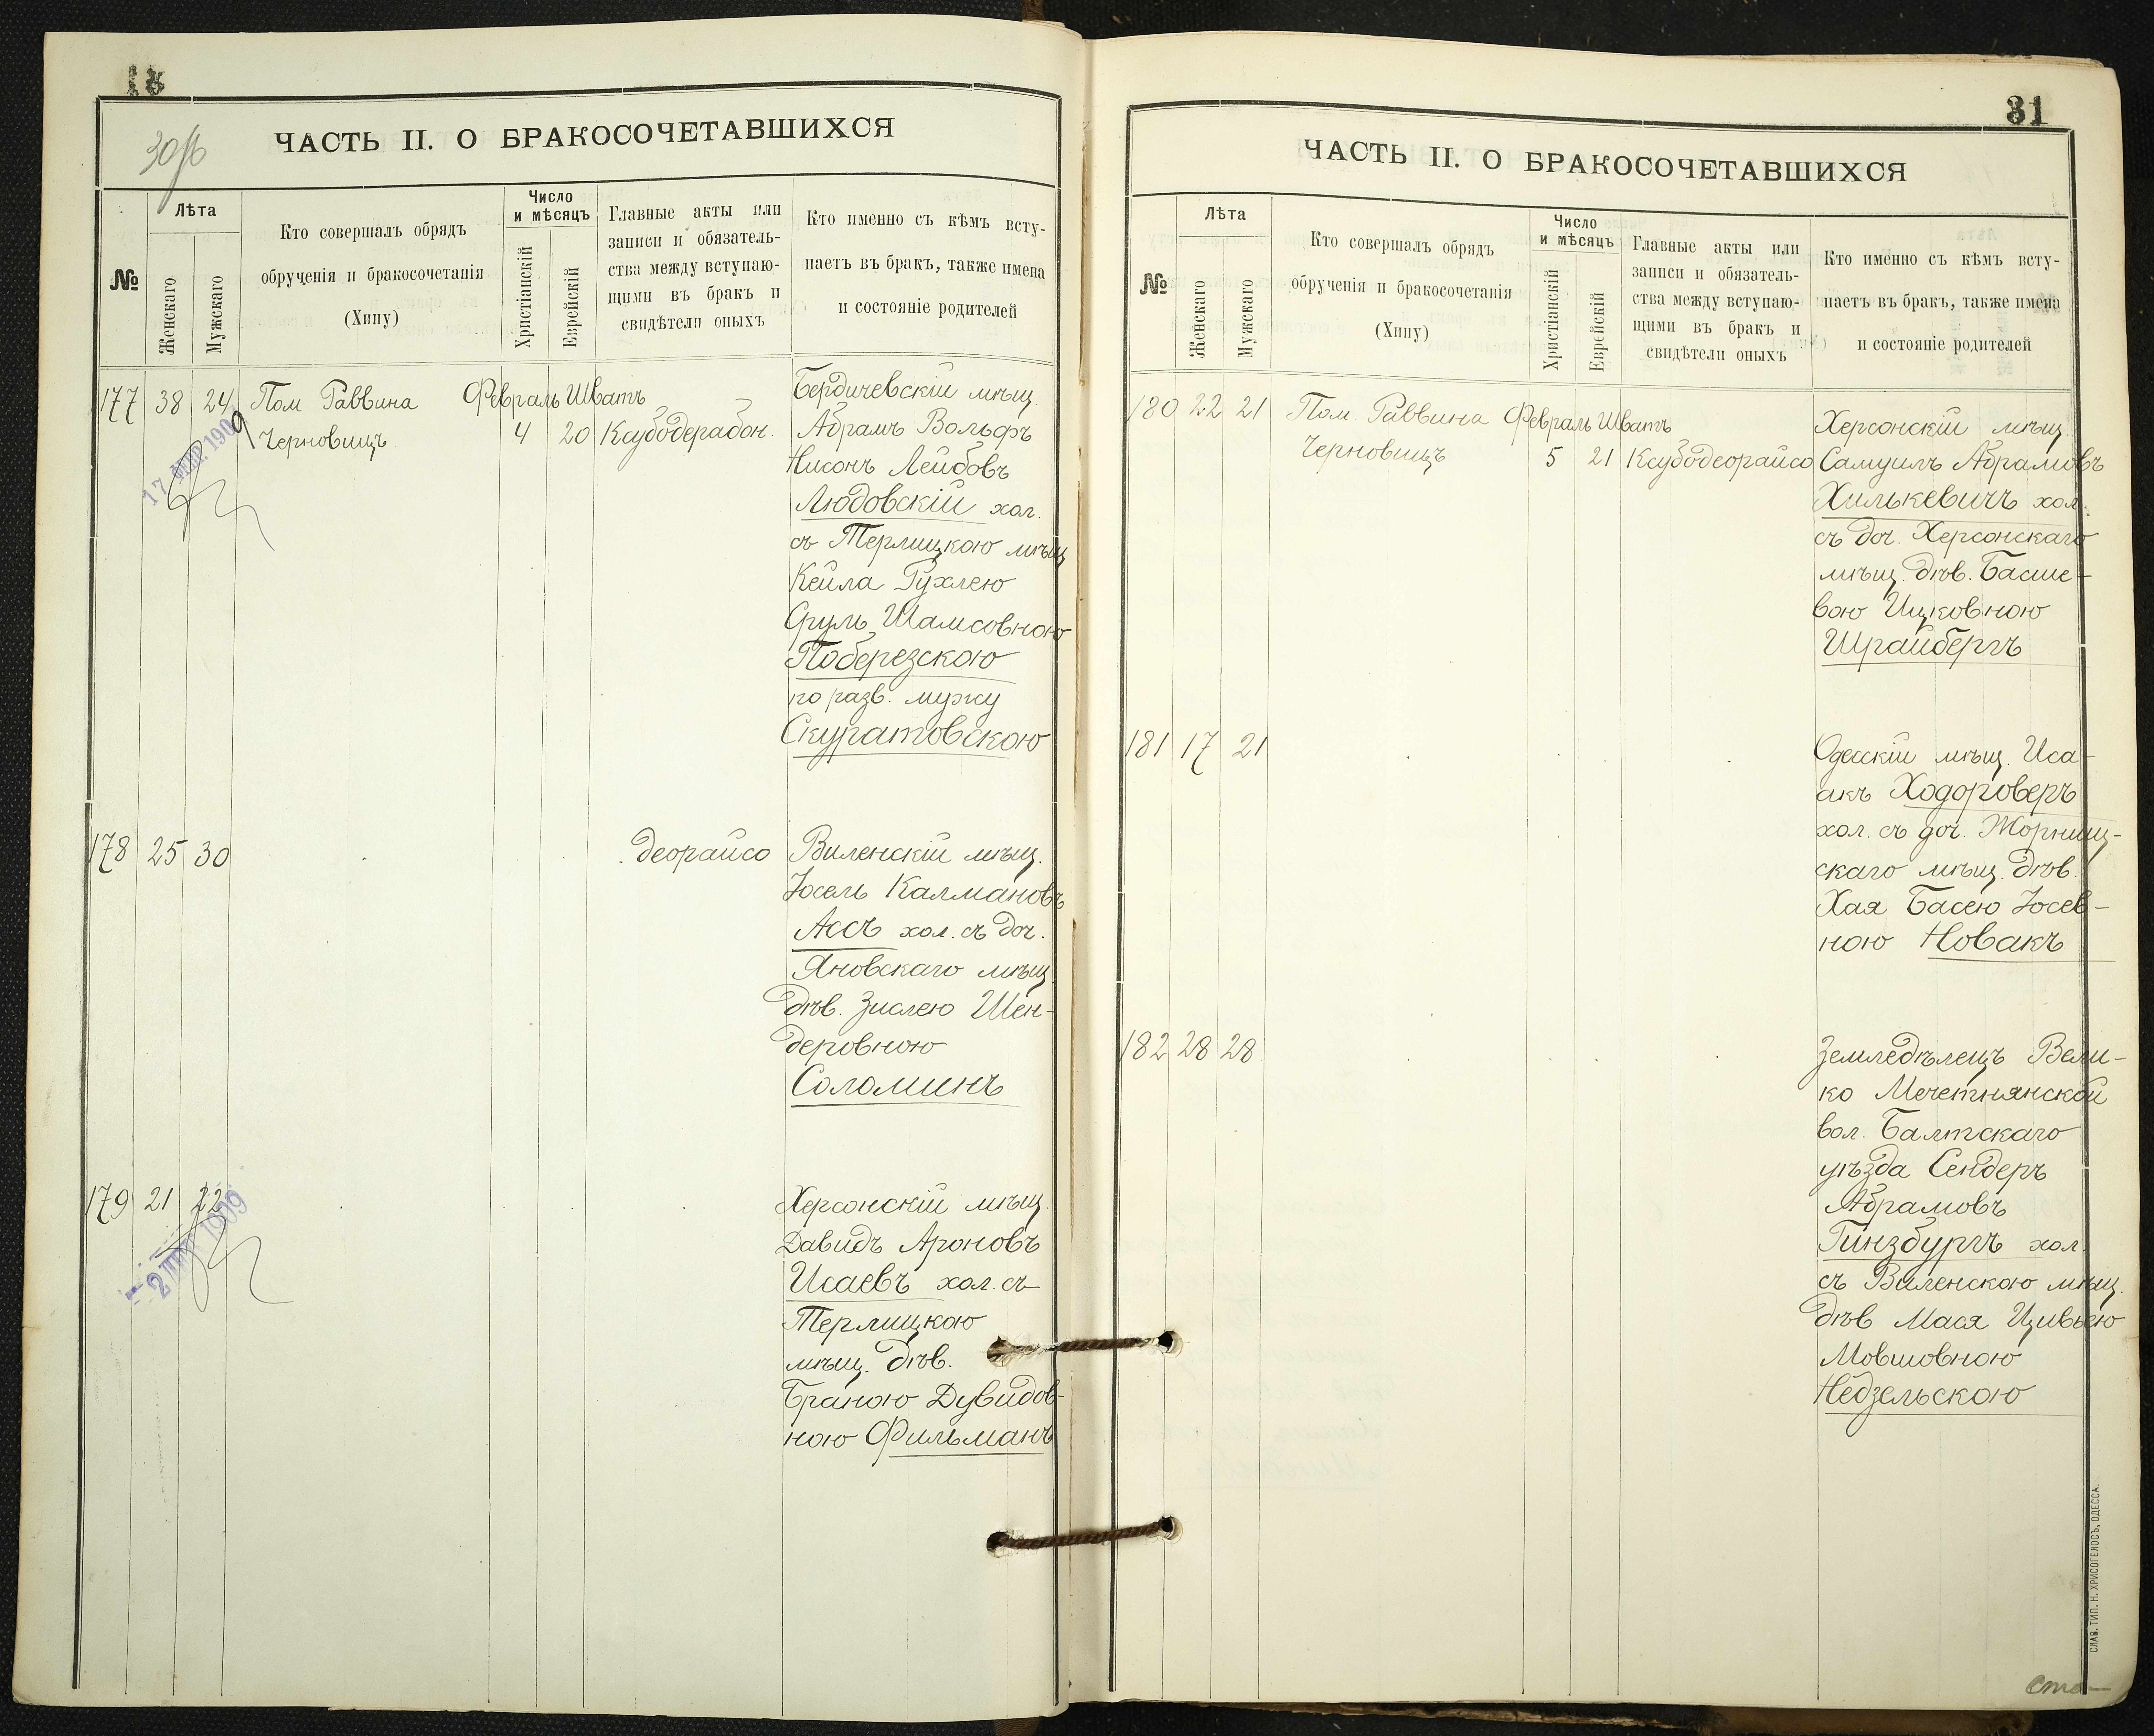 30 об
ЧАСТЬ II. О БРАКОСОЧЕТАВШИХСЯ
№
Лѣта
Женскаго
Мужскаго
Кто совершалъ обрядъ
обрученія и бракосочетанія
(Хипу)
Число
и мѣсяцъ
Христіанскій
Еврейскій
Главные акты или
записи и обязатель-
ства между вступаю-
щими въ бракъ и
свидѣтели оныхъ
Кто именно съ кѣмъ всту-
паетъ въ бракъ, также имена
и состояніе родителей
177 38 24 Пом Раввина Февраль Шватъ
Черновицъ 4 20 Ксубодерабон.
Бердичевскій мѣщ.
Абрамъ Вольфъ
Нисонъ Лейбовъ
Людовскій хол.
съ Терлицкою мѣщ
Кейла Рухлею
Сруль Шамсовною
Поберезскою
по разв. мужу
Скуратовскою
178 25 30 деорайсо
Виленскій мѣщ.
Іосель Калмановъ
Ассъ хол. съ доч.
Яновскаго мѣщ.
дѣв. Зислею Шен-
деровною
Соломинъ
179 21 22
Херсонскій мѣщ.
Давидъ Ароновъ
Исаевъ хол. съ
Терлицкою
мѣщ. дѣв.
Браною Дувидов-
ною Фильманъ
31
ЧАСТЬ II. О БРАКОСОЧЕТАВШИХСЯ
№
Лѣта
Женскаго
Мужскаго
Кто совершалъ обрядъ
обрученія и бракосочетанія
(Хипу)
Число
и мѣсяцъ
Христіанскій
Еврейскій
Главные акты или
записи и обязатель-
ства между вступаю-
щими въ бракъ и
свидѣтели оныхъ
Кто именно съ кѣмъ всту-
паетъ въ бракъ, также имена
и состояніе родителей
180 22 21 Пом. Раввина Февраль Шватъ
Черновицъ 5 21 Ксубодеорайсо
Херсонскій мѣщ.
Самуилъ Абрамовъ
Хилькевичъ хол.
съ доч. Херсонскаго
мѣщ. дѣв. Басше-
вою Ицковною
Шрайбергъ
181 17 21
Одесскій мѣщ. Иса-
акъ Ходороверъ
хол. съ доч. Жорнищ-
скаго мѣщ. дѣв.
Хая Басею Іосев-
ною Новакъ
182 28 28
Земледѣлецъ Вели-
ко Мечетнянской
вол. Балтскаго
уѣзда Сендеръ
Абрамовъ
Гинзбургъ хол.
съ Виленскою мѣщ.
дѣв Мася Цивьею
Мовшовною
Недзельскою
СЛАВ. ТИП. Н. ХРИСОГЕЛОСЪ, ОДЕССА.